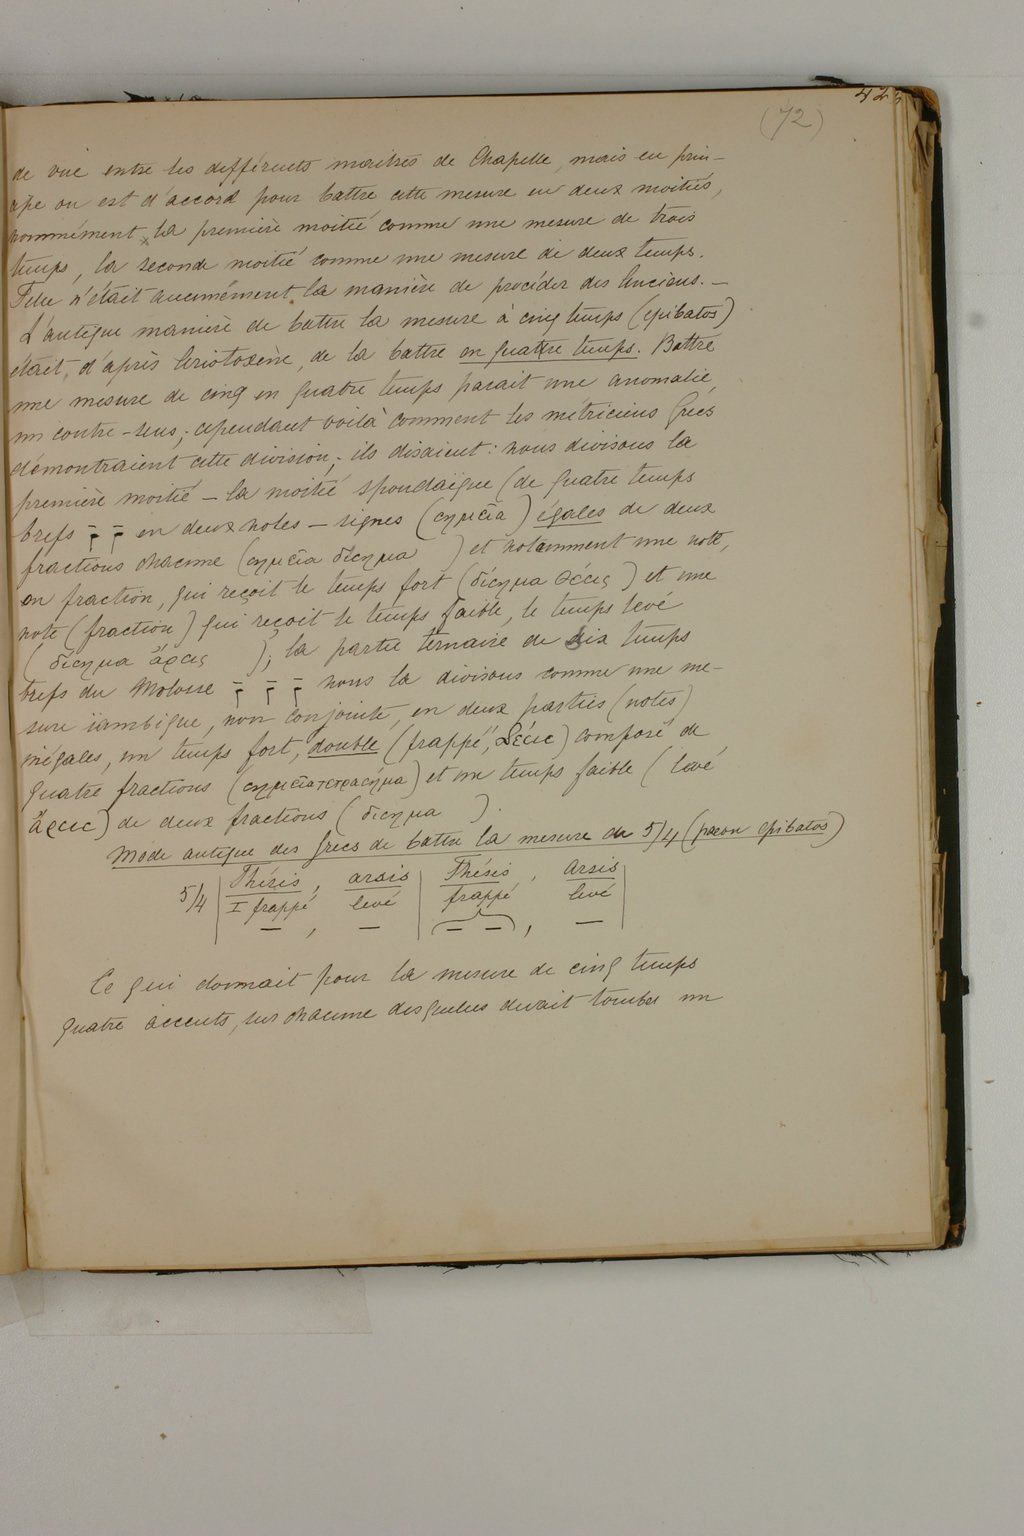 (72)
de vue entre les différents maitres de Chapelle, mais en prin-
cipe on est d'accord pour battre cette mesure en deux moitiés,
nommément la première moitié comme une mesure de trois
temps, la seconde moitié comme une mesure de deux temps.
Telle n'était aucunément la manière de procéder des Anciens. —
L'antique manière de battre la mesure à cinq temps (epibatos)
était, d'après Aristoxène, de la battre en quattre temps. Battre
une mesure de cinq en quatre temps parait une anomalie,
un contre-sens; cependant voilà comment les métriciens Grecs
démontraient cette division; ils disaient: nous divisons la
première moitié — la moitié spondaïque (de quatre temps
brefs en deux notes — signes (σημεῖα) égales de deux
fractions chacune (σημεῖα δίσημα) et notamment une note,
on fraction, qui reçoit le temps fort (δίσημα θέσις) et une
note (fraction) qui reçoit le temps faible, le temps levé
(δίσημα ἄρσις); la partie ternaire de six temps
brefs du Molosse nous la divisons comme une me-
sure ïambique, non conjointe, en deux parties (notes)
inégales, un temps fort, double (frappé, θέσις) composé de
quatre fractions (σημεῖα τετράσημα) et un temps faible (levé
ἄρσις) de deux fractions (δίσημα).
Mode antique des Grecs de battre la mesure de 5/4 (pæon epibatos)
5/4 | Thésis, arsis | Thésis, Arsis |
I frappé levé | frappé levé
— , — | — — , — |
Ce qui donnait pour la mesure de cinq temps
quatre accents, sur chacune desquelles devait tomber un